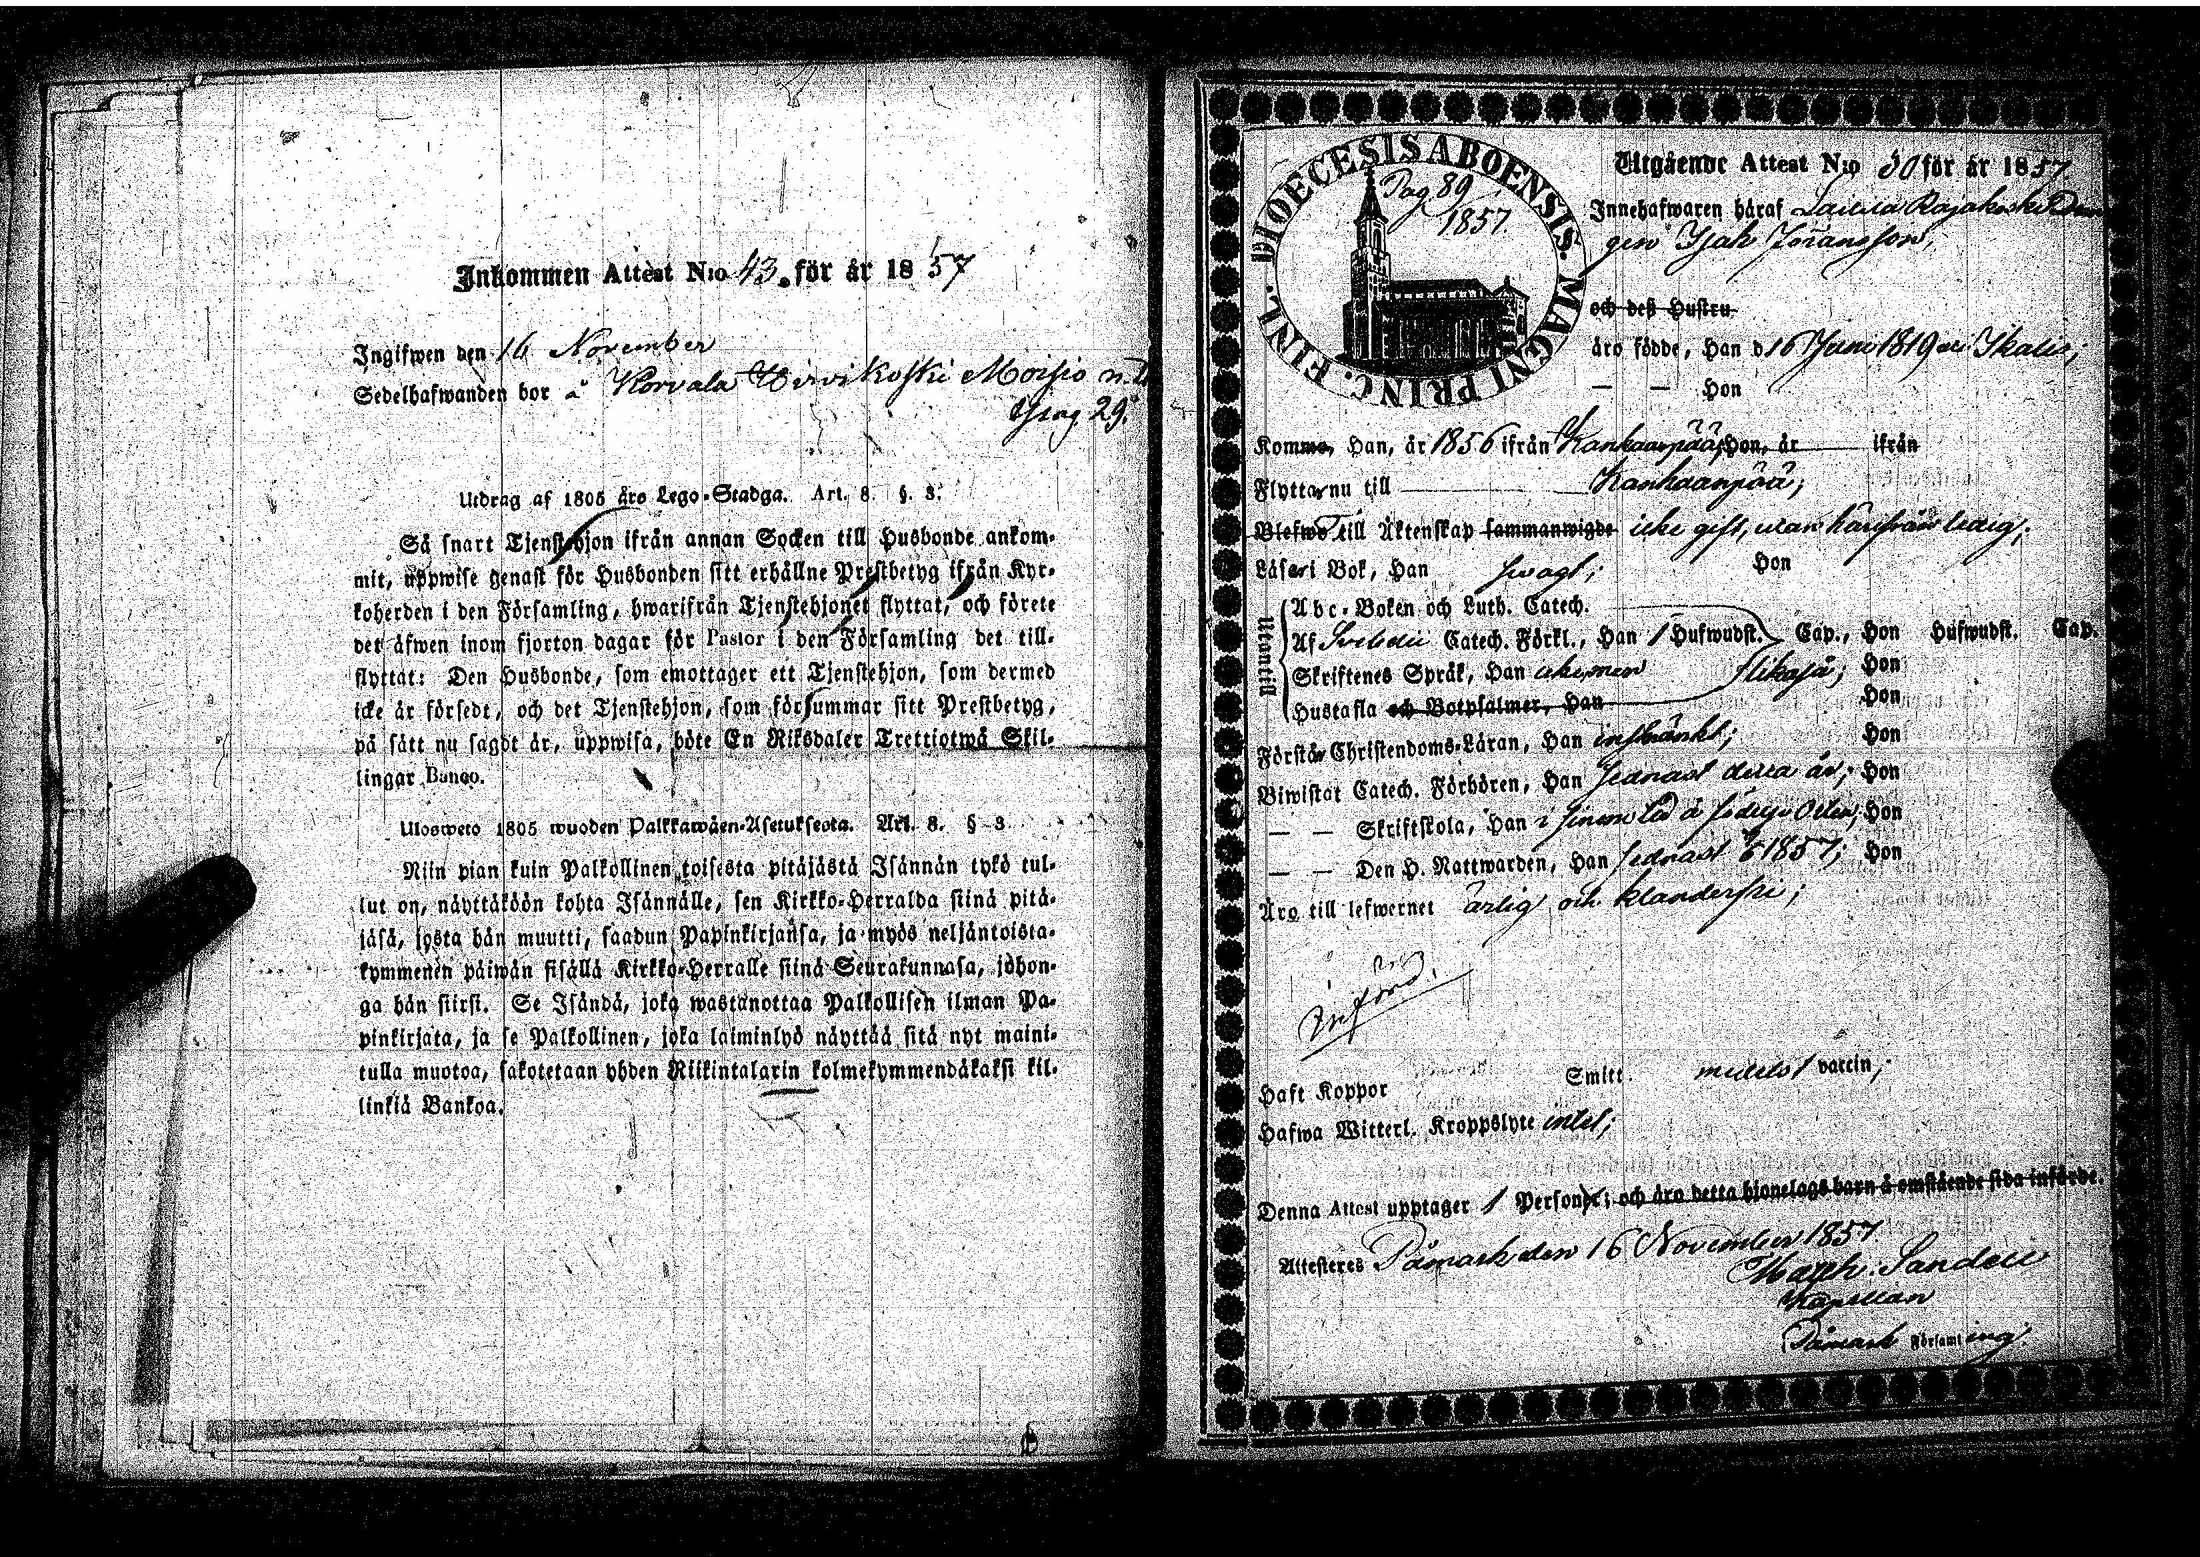 Inkommen Attest N:o 43. för år 1857
Ingifwen den 16 November
Sedelhafwanden bor å Korvala Moisio
pag 29.
Utdrag af 1805 års Lego-Stadga. Art. 8. §. 3.
Så snart Tjenstehjon ifrån annan Socken till Husbonde ankom-
mit, uppwise genast för Husbonden sitt erhållne Prestbetyg ifrån Kyr-
koherden i den Församling, hwarifrån Tjenstehjonet flyttat, och förete
det äfwen inom fjorton dagar för Pastor i den Församling det till-
flyttat: Den Husbonde, som emottager ett Tjenstehjon, som dermed
icke är försedt, och det Tjenstehjon, som försummar sitt Prestbetyg,
på sätt nu sagdt är, uppwisa, böte En Riksdaler Trettiotwå Skil-
lingar Banco.
Ulosweto 1805 wuoden Palkkawäen-Asetuksesta. Art. 8. § 3
Niin pian kuin Palkollinen toisesta pitäjästä Isännän tykö tul-
lut on, näyttäköön kohta Isännälle, sen Kirkko-Herralda siinä pitä-
jäsä, josta hän muutti, saadun Papinkirjansa, ja myös neljäntoista-
kymmenen päiwän sisällä Kirkko-Herralle siinä Seurakunnasa, johon-
ga hän siirsi. Se Isändä, joka wastanottaa Palkollisen ilman Pa-
pinkirjata, ja se Palkollinen, joka laiminlyö näyttää sitä nyt maini-
tulla muotoa, sakotetaan yhden Riikintalarin kolmekymmendäkaksi kil-
linkiä Bankoa.
DIOECESIS ABOENSIS. MAGNI PRINC. FINL.
Pag 89
1857.
Utgående Attest N:o 30 för år 1857
Innehafwaren häraf Drän
gen Isak Johansson,
och deß Hustru
äro födde, Han d 16 Juni 1819 i Ikalis;
— — Hon
Komne, Han, år 1856 ifrån Kankaanpää; Hon, år ifrån
Flyttar nu till Kankaanpää;
Blefwo till Äktenskap sammanwigde icke gift, utan härifrån ledig;
Läser i Bok, Han swagt; Hon
Utantill
Abc-Boken och Luth. Catech.
Af Svebelii Catech. Förkl., Han 1 Hufwudst. Cap., Hon Hufwudst. Cap.
Skriftenes Språk, Han likaså; Hon
Hustafla och Botpsalmer, Han Hon
Förstår Christendoms-Läran, Han inskränkt; Hon
Biwistat Catech. Förhören, Han sednast detta år; Hon
— — Skriftskola, Han i sinom tid å Hon
— — Den H. Nattwarden, Han sednast 1857; Hon
Äro till lefwernet ärlig och klanderfri;
Införd.
Haft Koppor Smitt. medelst vaccin;
Hafwa Witterl. Kroppslyte intet;
Denna Attest upptager 1 Person; och äro detta hjonelags barn å omstående sida införde.
Attesteres Påmark den 16 November 1857
Sandell
Kapellan
Påmark Församling.